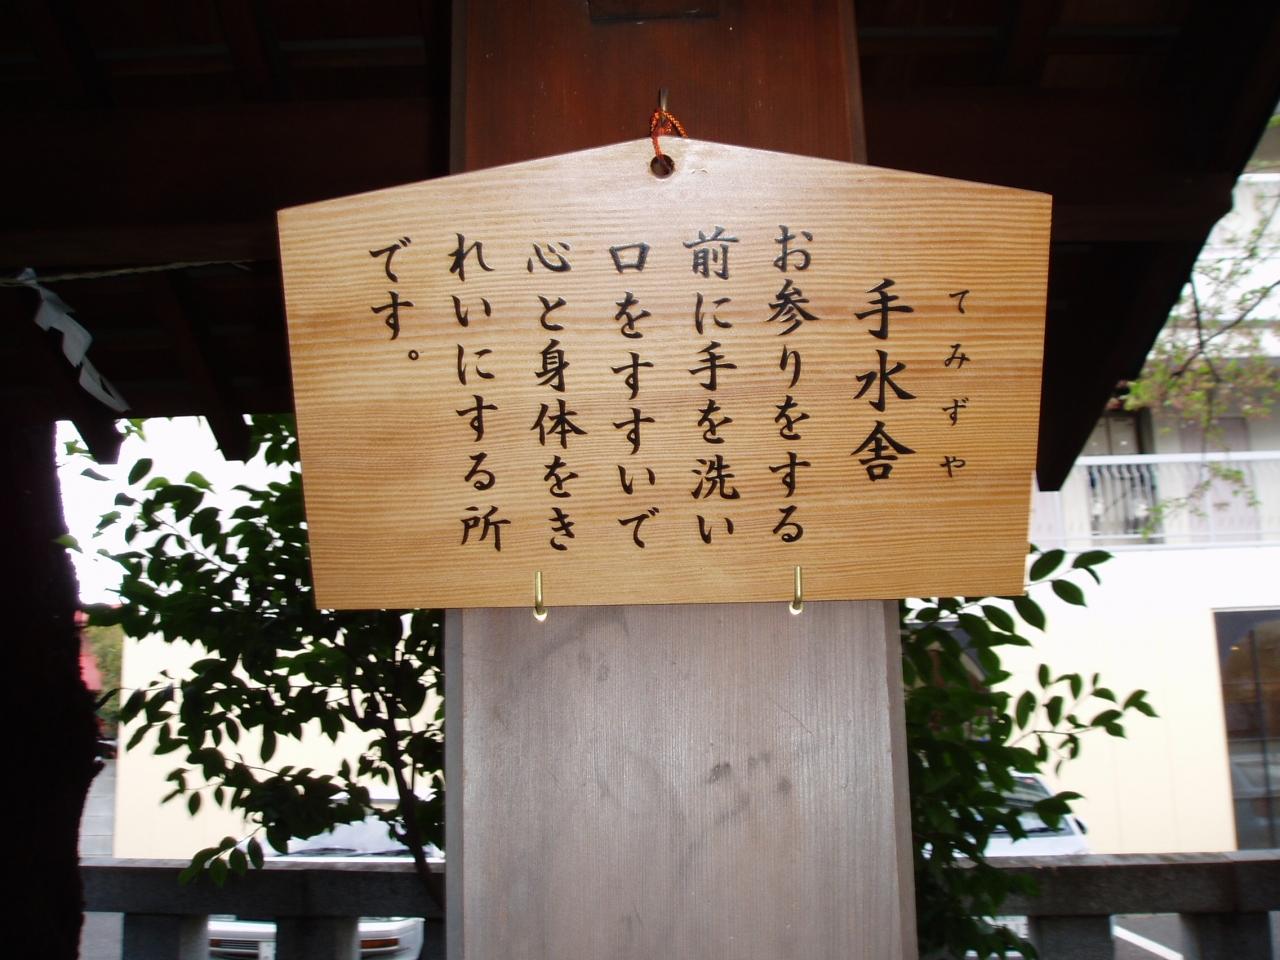 てみずや
手水舎
お参りをする
前に手を洗い
口をすすいで
心と身体をき
れいにする所
です。